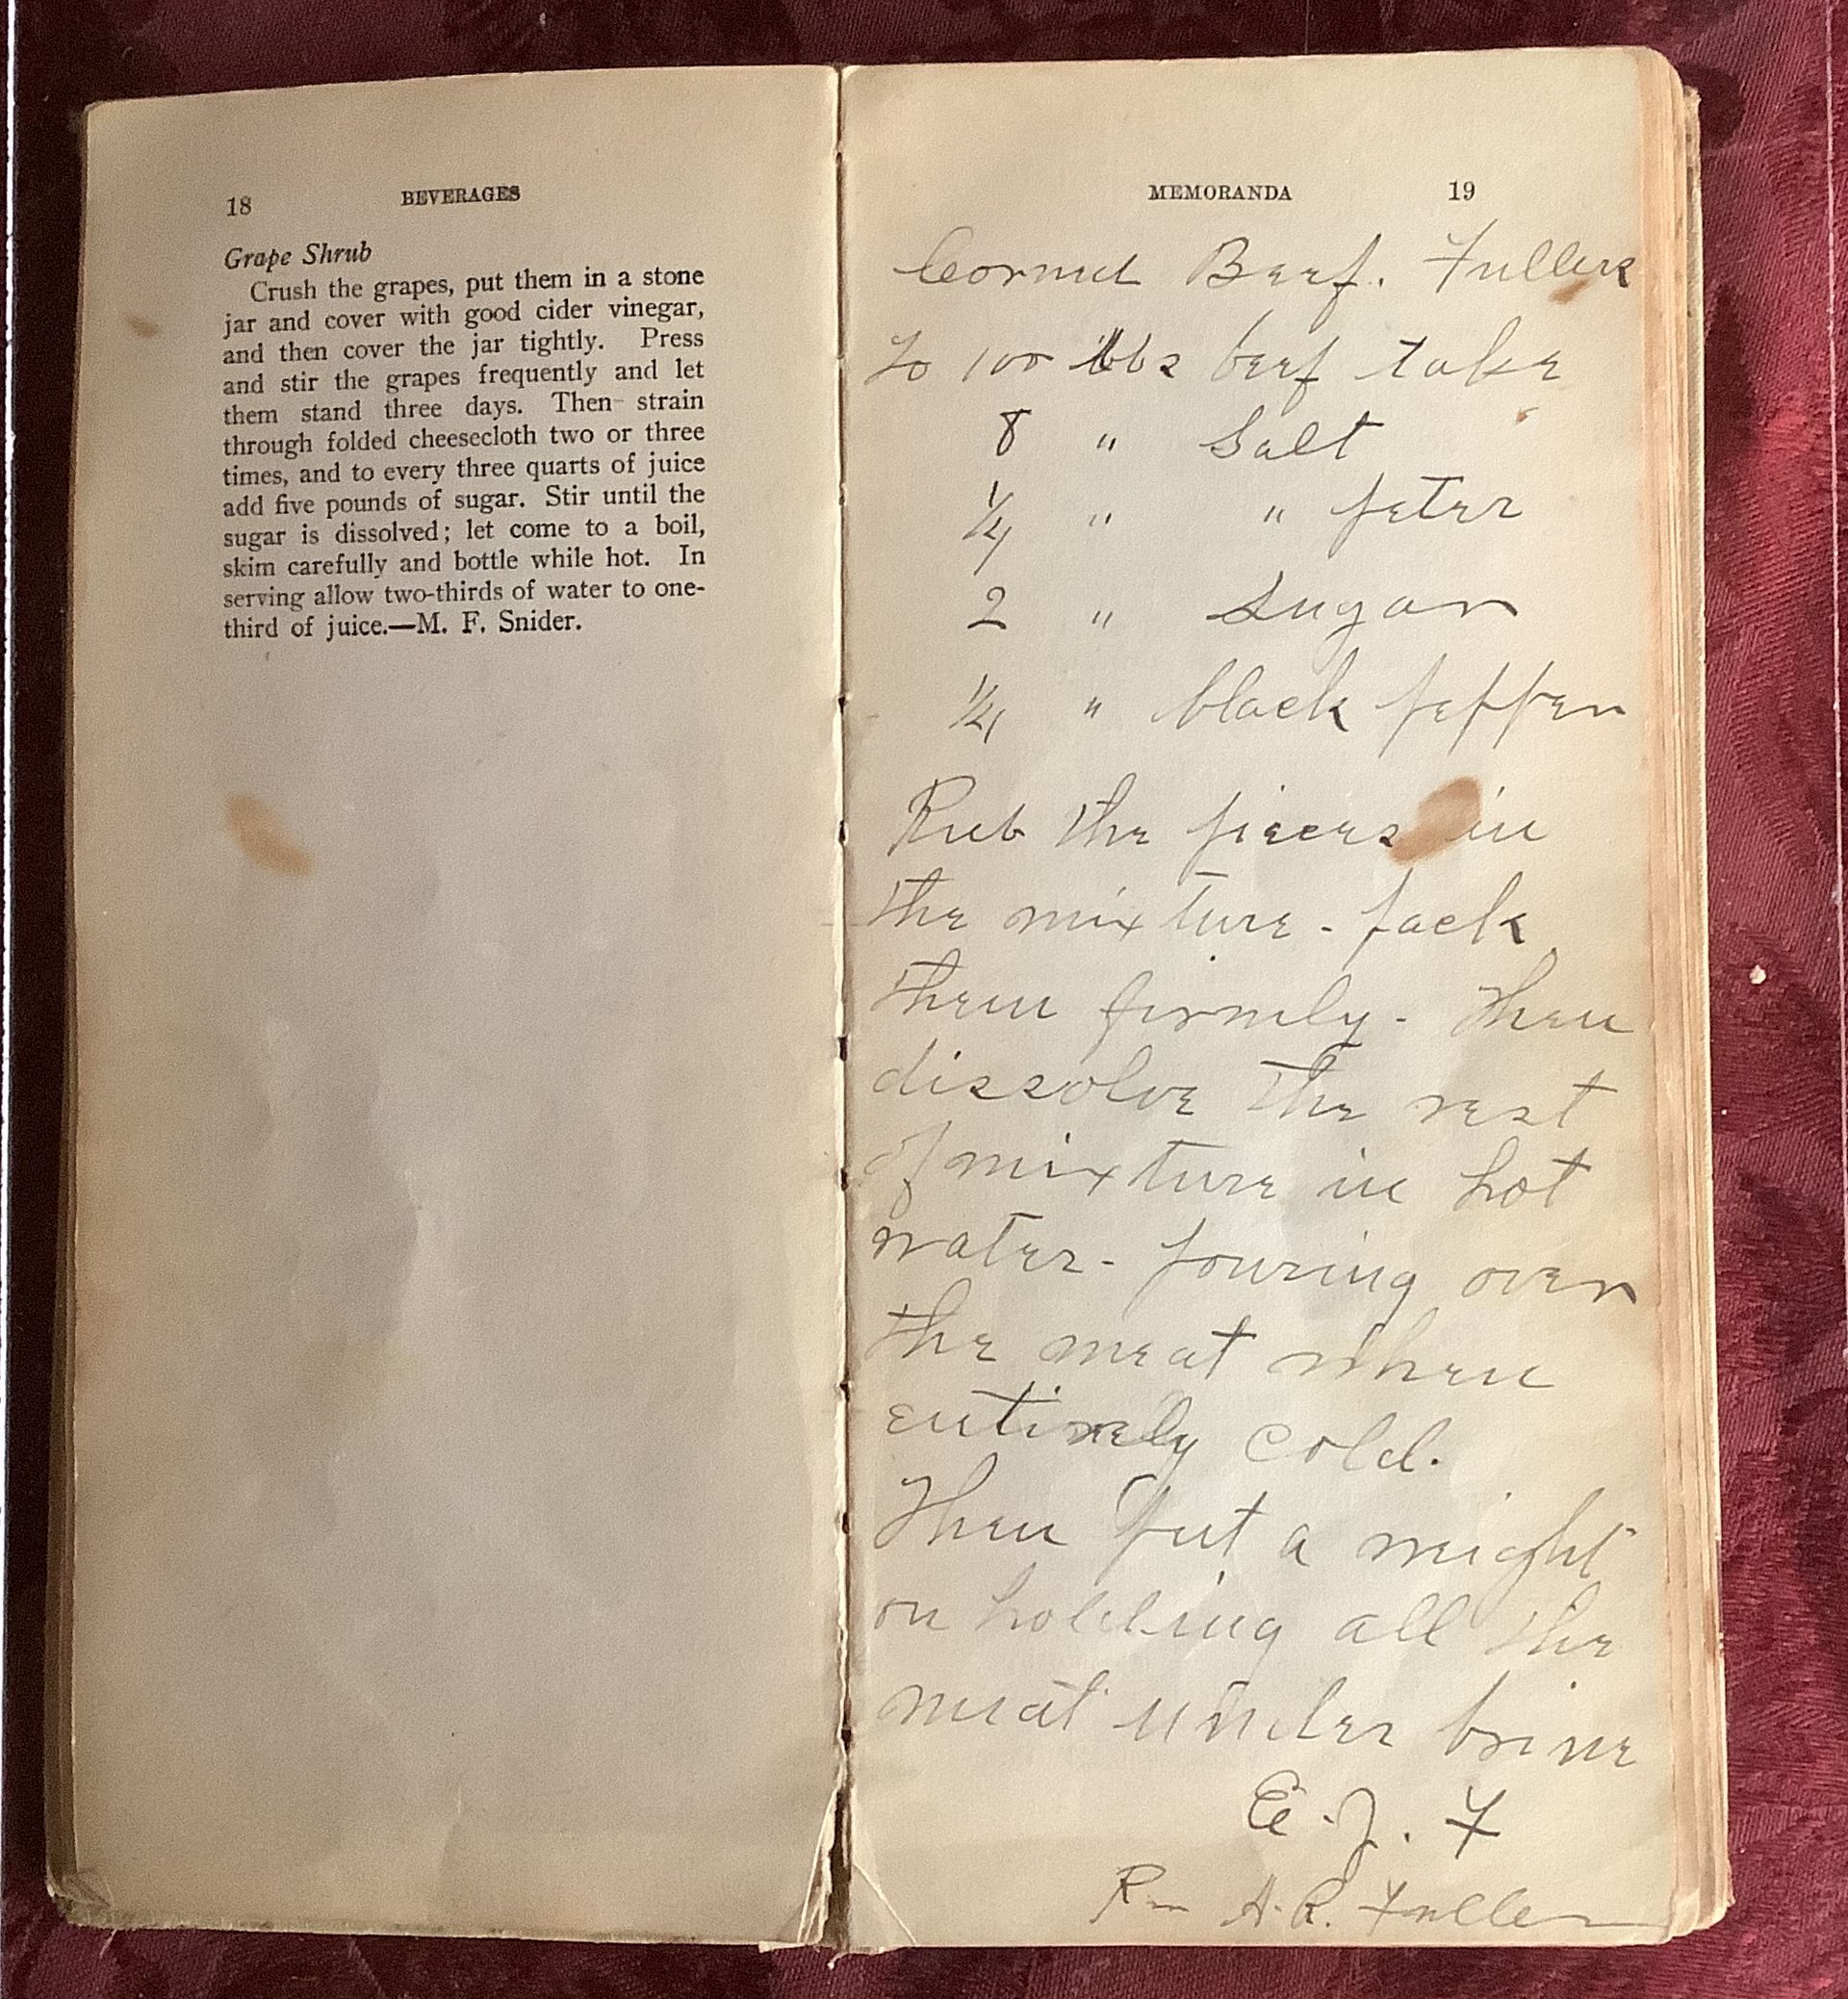 18 BEVERAGES
Grape Shrub
Crush the grapes, put them in a stone
jar and cover with good cider vinegar,
and then cover the jar tightly. Press
and stir the grapes frequently and let
them stand three days. Then strain
through folded cheesecloth two or three
times, and to every three quarts of juice
add five pounds of sugar. Stir until the
sugar is dissolved; let come to a boil,
skim carefully and bottle while hot. In
serving allow two-thirds of water to one-
third of juice.—M. F. Snider.
MEMORANDA 19
Corned Beef. Fullers
To 100 lbs beef take
8 " Salt
1/4 " " peter
2 " Sugar
1/4 " black pepper
Rub the pieces in
the mixture - pack
them firmly - Then
dissolve the rest
of mixture in hot
water - pouring over
the meat when
entirely cold.
Then put a weight
on holding all the
meat under brine
E. J. F
A. R. Fuller